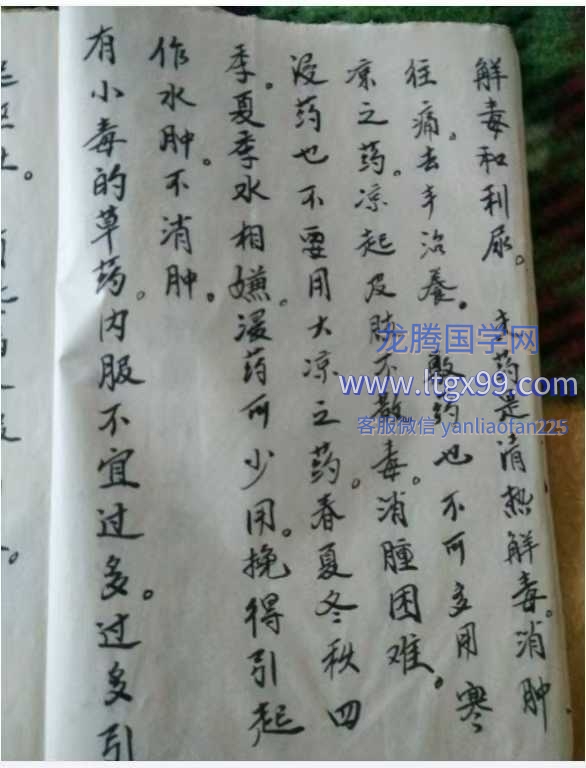 解毒和利尿。 主药是清热解毒。消肿
往痛。去丰治養。敷药也不可多用寒
凉之药。凉起及肤不散毒。消腫困难。
浸药也不要用大凉之药。春夏冬秋四
季。夏季水相嫌。浸药可少用。挽得引起
作水肿。不消肿。
有小毒的草药。内服不宜过多。过多引
龙腾国学网
www.ltgx99.com
客服微信 yanliaofan225